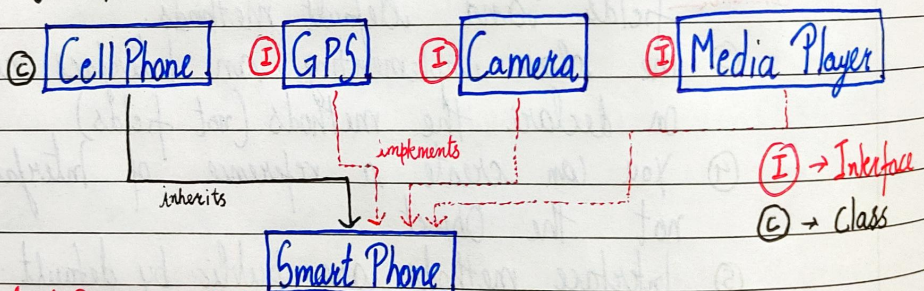 C Cell Phone I GPS I Camera I Media Player
implments
I → Interface
inherits
C → Class
Smart Phone